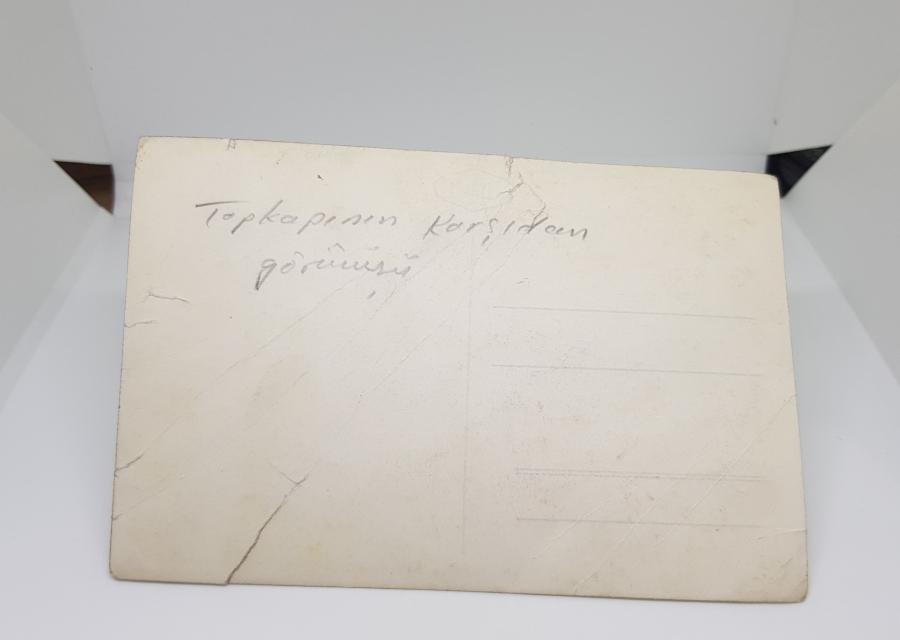 Topkapının Karşıdan
görünüşü